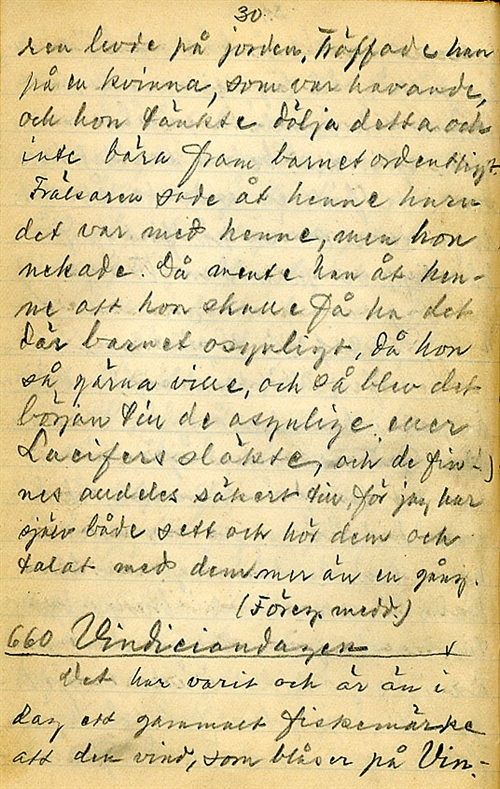 30.
ren levde på jorden, Träffade han
på en kvinna, som var havande,
och hon tänkte dölja detta och
inte bära fram barnet ordentligt.
Frälsaren sade åt henne huru
det var med henne, men hon
nekade. Då mente han åt hen-
ne att hon skulle få ha det
där barnet osynligt, då hon
så gärna ville, och så blev det
början till de osynlige eller
Lucifers släkte, och de fin-
nes alldeles säkert till, för jag har
själv både sett och hört dem och
talat med dem mer än en gång.
(Föreg. medd.)
660 Vindiciandagen
Det har varit och är än i
dag ett gammalt fiskemärke
att den vind, som blåser på Vin-